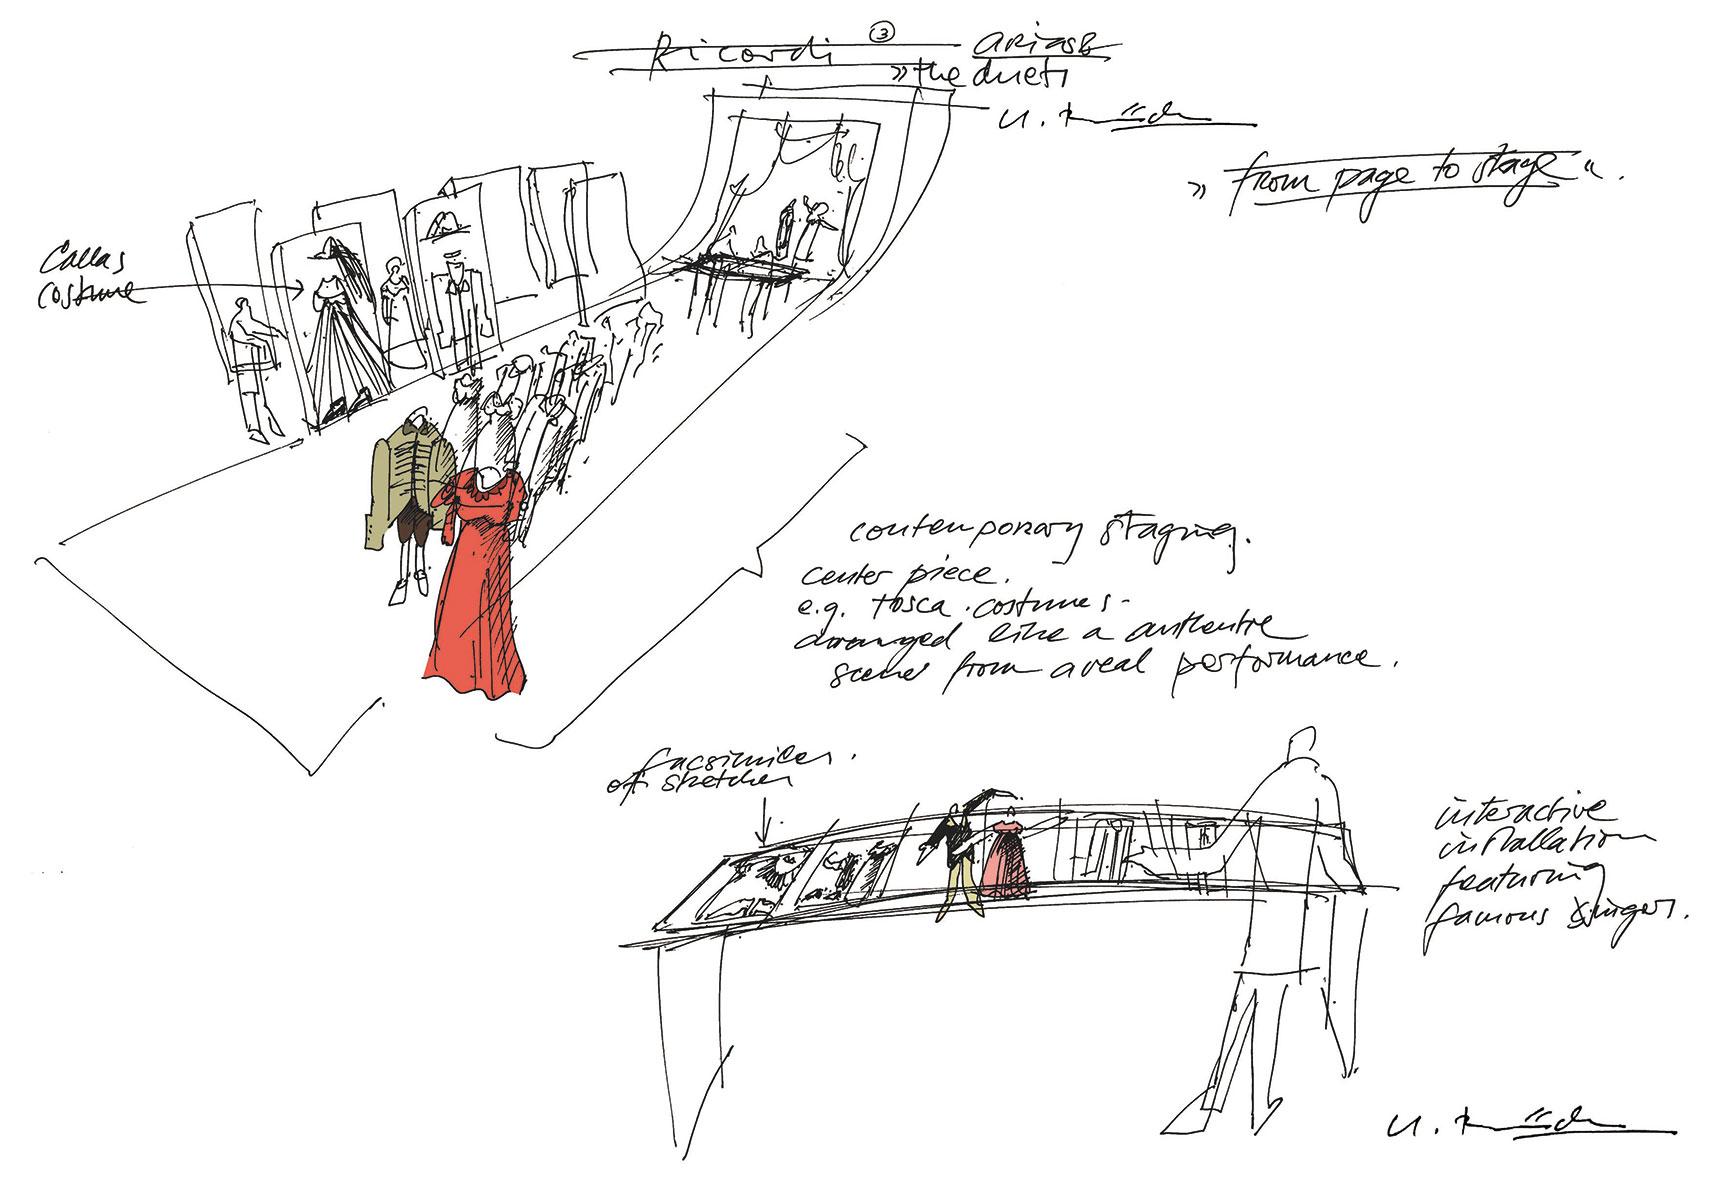 Ricordi ③ arias &
»the duets
»from page to stage«.
Callas
costume
contemporary staging.
center piece.
e.g. Tosca. costumes-
arranged like a authentic
scene from a real performance.
facsimiles.
of sketches
interactive
installation
featuring
famous singers.